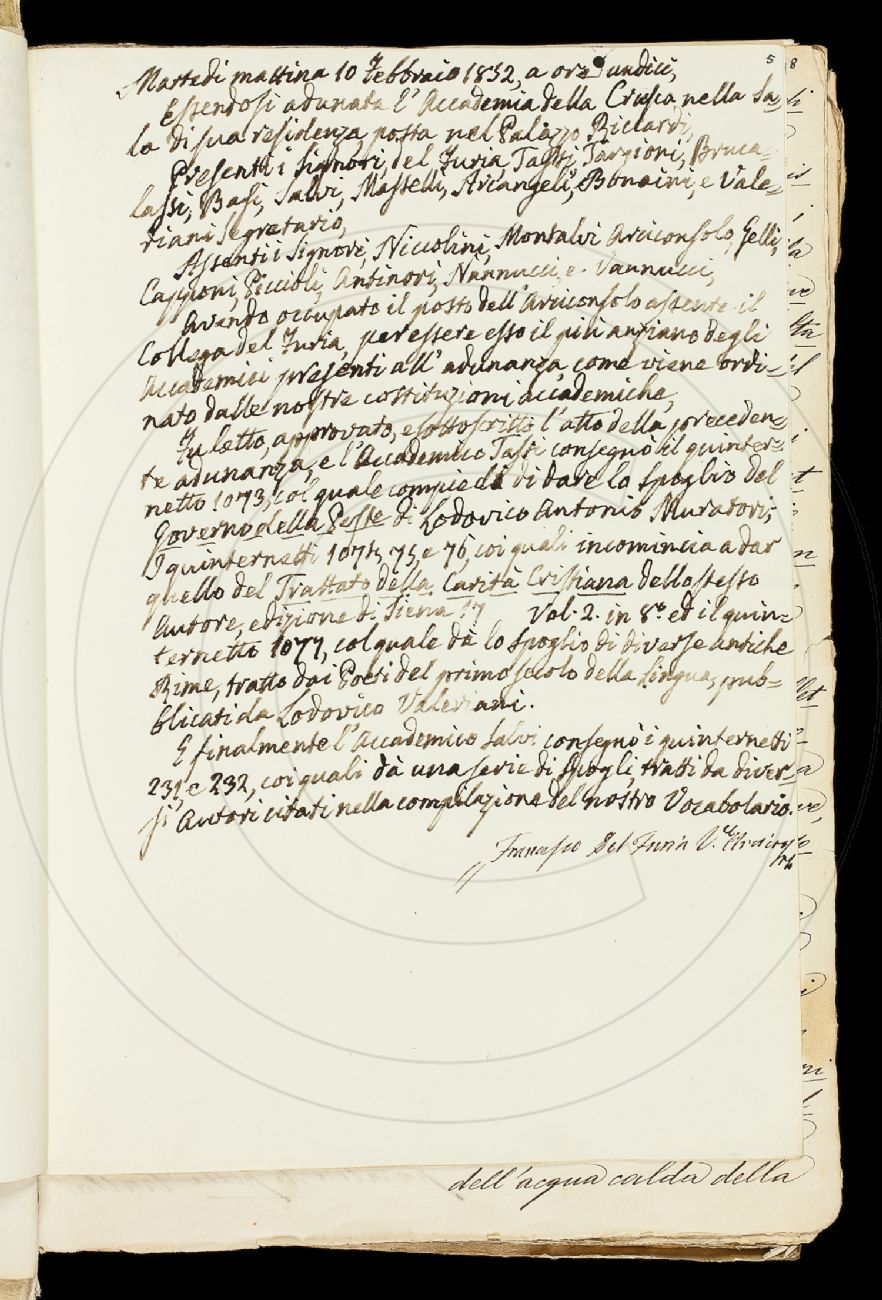 5
Martedì mattina 10 Febbraio 1852, a ore undici,
Essendosi adunata l'Accademia della Crusca nella Sa-
la di sua residenza, posta nel Palazzo Riccardi,
Presenti i Signori, del Furia, Tassi, Targioni, Bruca-
lassi, Basi, Salvi, Masselli, Arcangeli, Bonaini, e Vale-
riani Segretario,
Assenti i Signori, Niccolini, Montalvi Arciconsolo, Gelli,
Capponi, Piccioli, Antinori, Nannucci, e Vannucci,
Avendo occupato il posto dell'Arciconsolo assente il
Collega del Furia, per essere esso il più anziano degli
Accademici presenti all'adunanza, come viene ordi-
nato dalle nostre costituzioni accademiche,
Fu letto, approvato, e sottoscritto l'atto della preceden-
te adunanza, e l'Accademico Tassi consegnò il quinter-
netto 1073, col quale compie di dare lo spoglio del
Governo della Peste di Lodovico Antonio Muratori;
I quinternetti 1074, 75, e 76, coi quali incomincia a dar
quello del Trattato della Carità Cristiana dello stesso
Autore, edizione di Siena 17 Vol. 2. in 8.º ed il quin-
ternetto 1077, col quale dà lo spoglio di diverse antiche
Rime, tratto dai Poeti del primo secolo della lingua, pub-
blicati da Lodovico Valeriani.
E finalmente l'Accademico Salvi consegnò i quinternetti
231, e 232, coi quali dà una serie di spogli tratti da diver-
si Autori citati nella compilazione del nostro Vocabolario.
Francesco Del Furia V.e Arciconso
lo
8
dell'acqua calda della